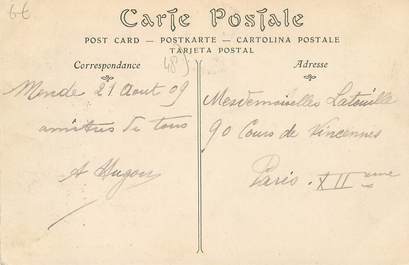 66
Carte Postale
POST CARD — POSTKARTE — CARTOLINA POSTALE
TARJETA POSTAL
Correspondance
48)
Adresse
Mende 21 Aout 09
amitiés de tous
A Hugon
Mesdemoiselles Latouille
90 Cours de Vincennes
Paris. XII eme